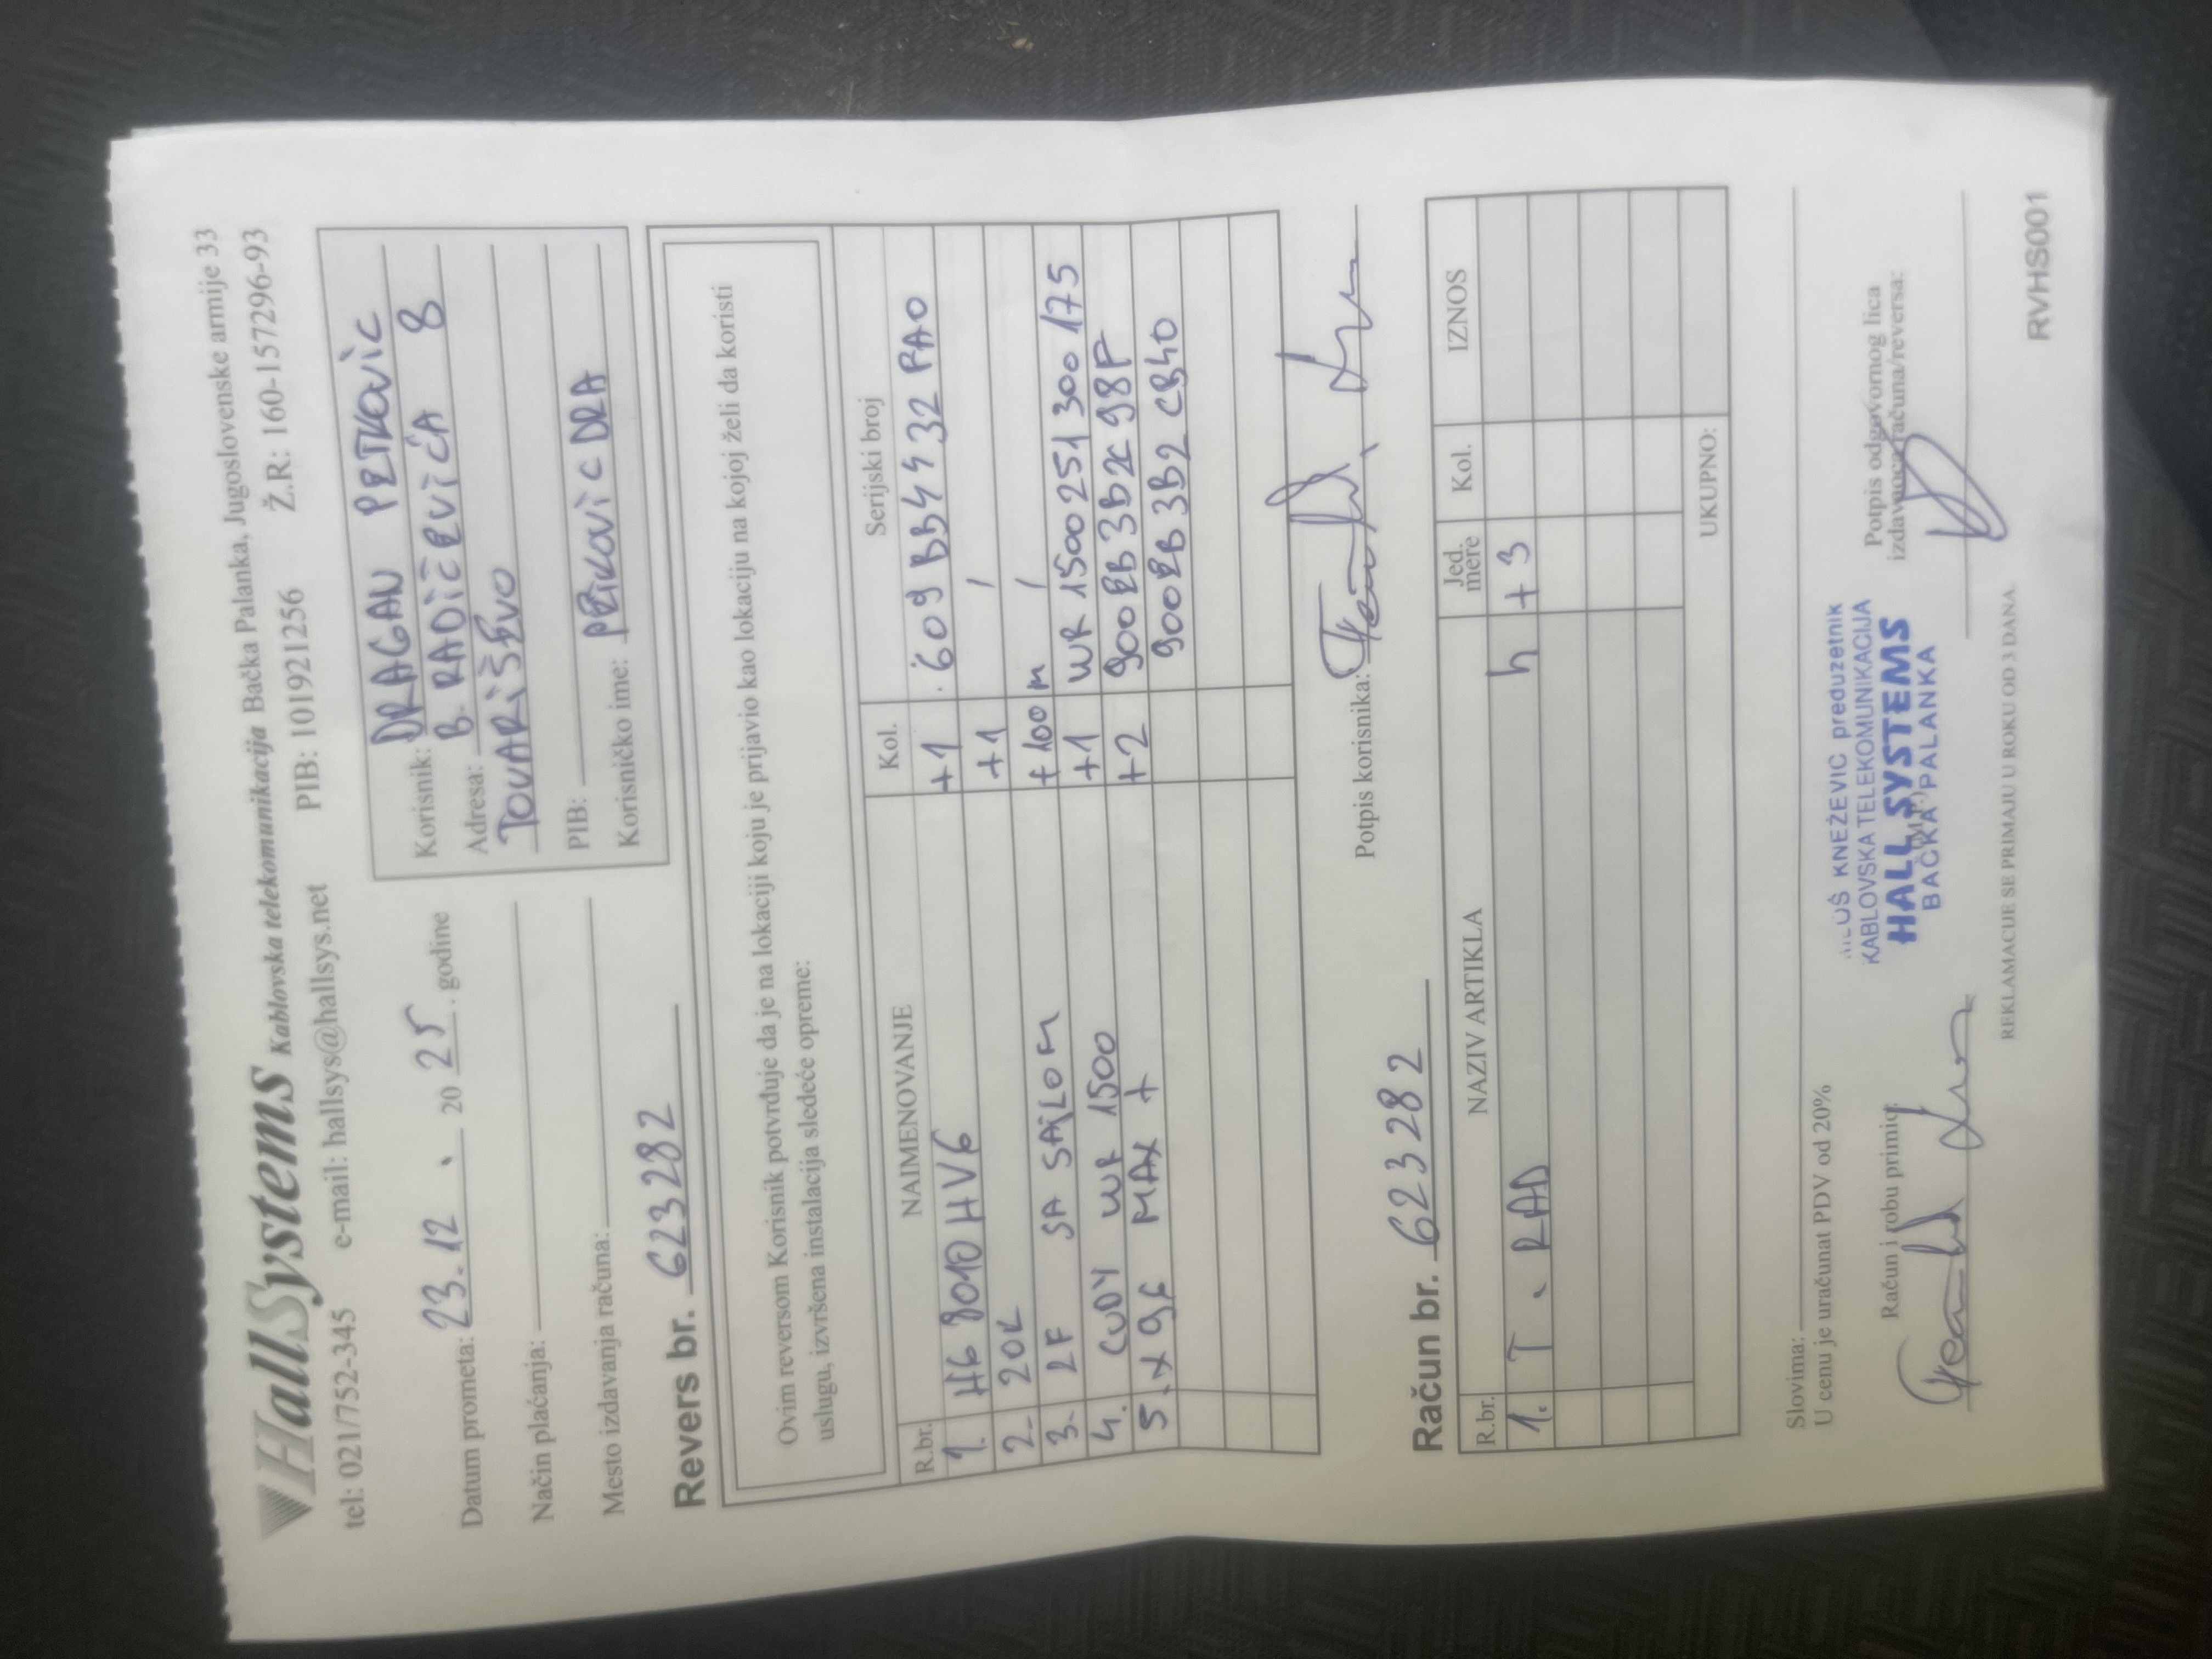 HallSystems Kablovska telekomunikacija Bačka Palanka, Jugoslovenske armije 33
tel: 021/752-345 e-mail: hallsys@hallsys.net PIB: 101921256 Ž.R: 160-157296-93
Datum prometa: 23.12. 2025. godine
Način plaćanja:
Mesto izdavanja računa:
Korisnik: DRAGAN PETKOVIC
Adresa: B. RADIČEVIĆA 8
TOVARIŠEVO
PIB:
Korisničko ime: PETKOVICDRA
Revers br. 623282
Ovim reversom Korisnik potvrđuje da je na lokaciji koju je prijavio kao lokaciju na kojoj želi da koristi
uslugu, izvršena instalacija sledeće opreme:
R.br. NAIMENOVANJE Kol. Serijski broj
1. H68010HV6 +1 609BB4432FA0
2. ZOK +1 /
3. 2F SA SAJLOM +100m /
4. CUDY WR 1500 +1 WR1500251300175
5. X96 MAX + +2 900EB3B2C98F
900EB3B2CB40
Potpis korisnika:
Račun br. 623282
R.br. NAZIV ARTIKLA Jed. mere Kol. IZNOS
1. T. RAD h +3
UKUPNO:
Slovima:
U cenu je uračunat PDV od 20%
Račun i robu primio:
KNEŽEVIĆ preduzetnik
KABLOVSKA TELEKOMUNIKACIJA
HALL SYSTEMS
BAČKA PALANKA
Potpis odgovornog lica
izdavaoca računa/reversa:
REKLAMACIJE SE PRIMAJU U ROKU OD 3 DANA.
RVHS001